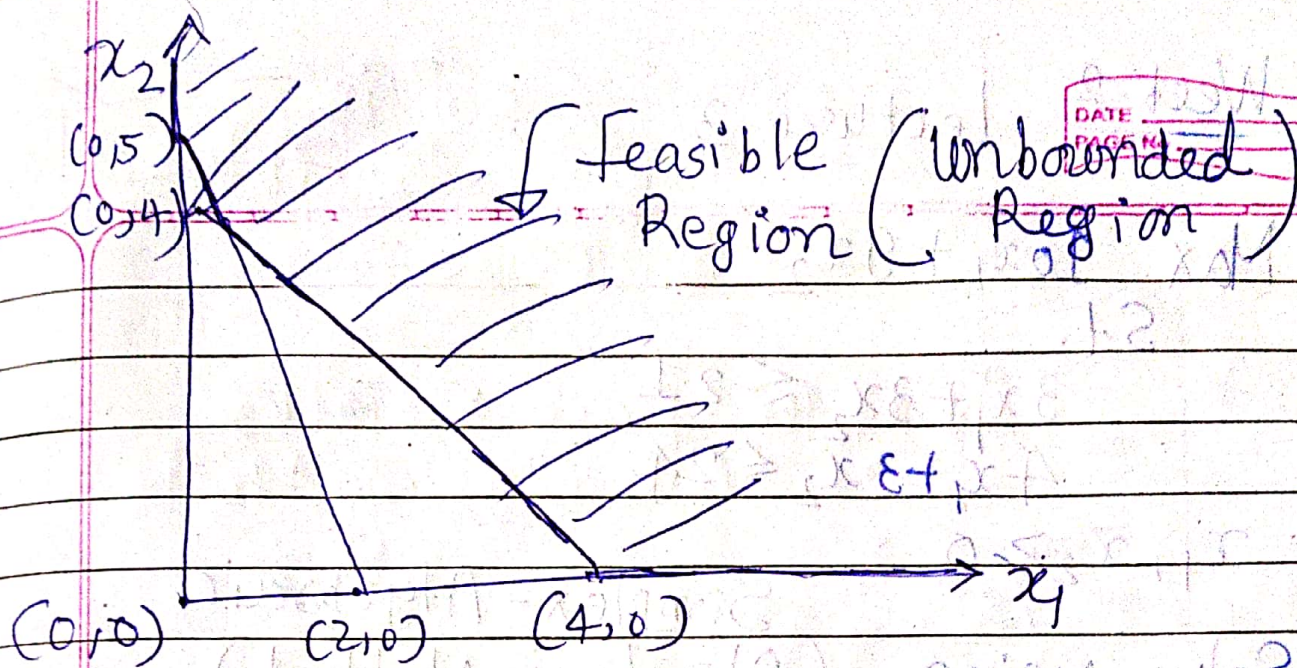 x₂
(0,5)
(0,4)
feasible
Region
(Unbounded
Region)
DATE
PAGE N
x₁
(0,0)
(2,0)
(4,0)